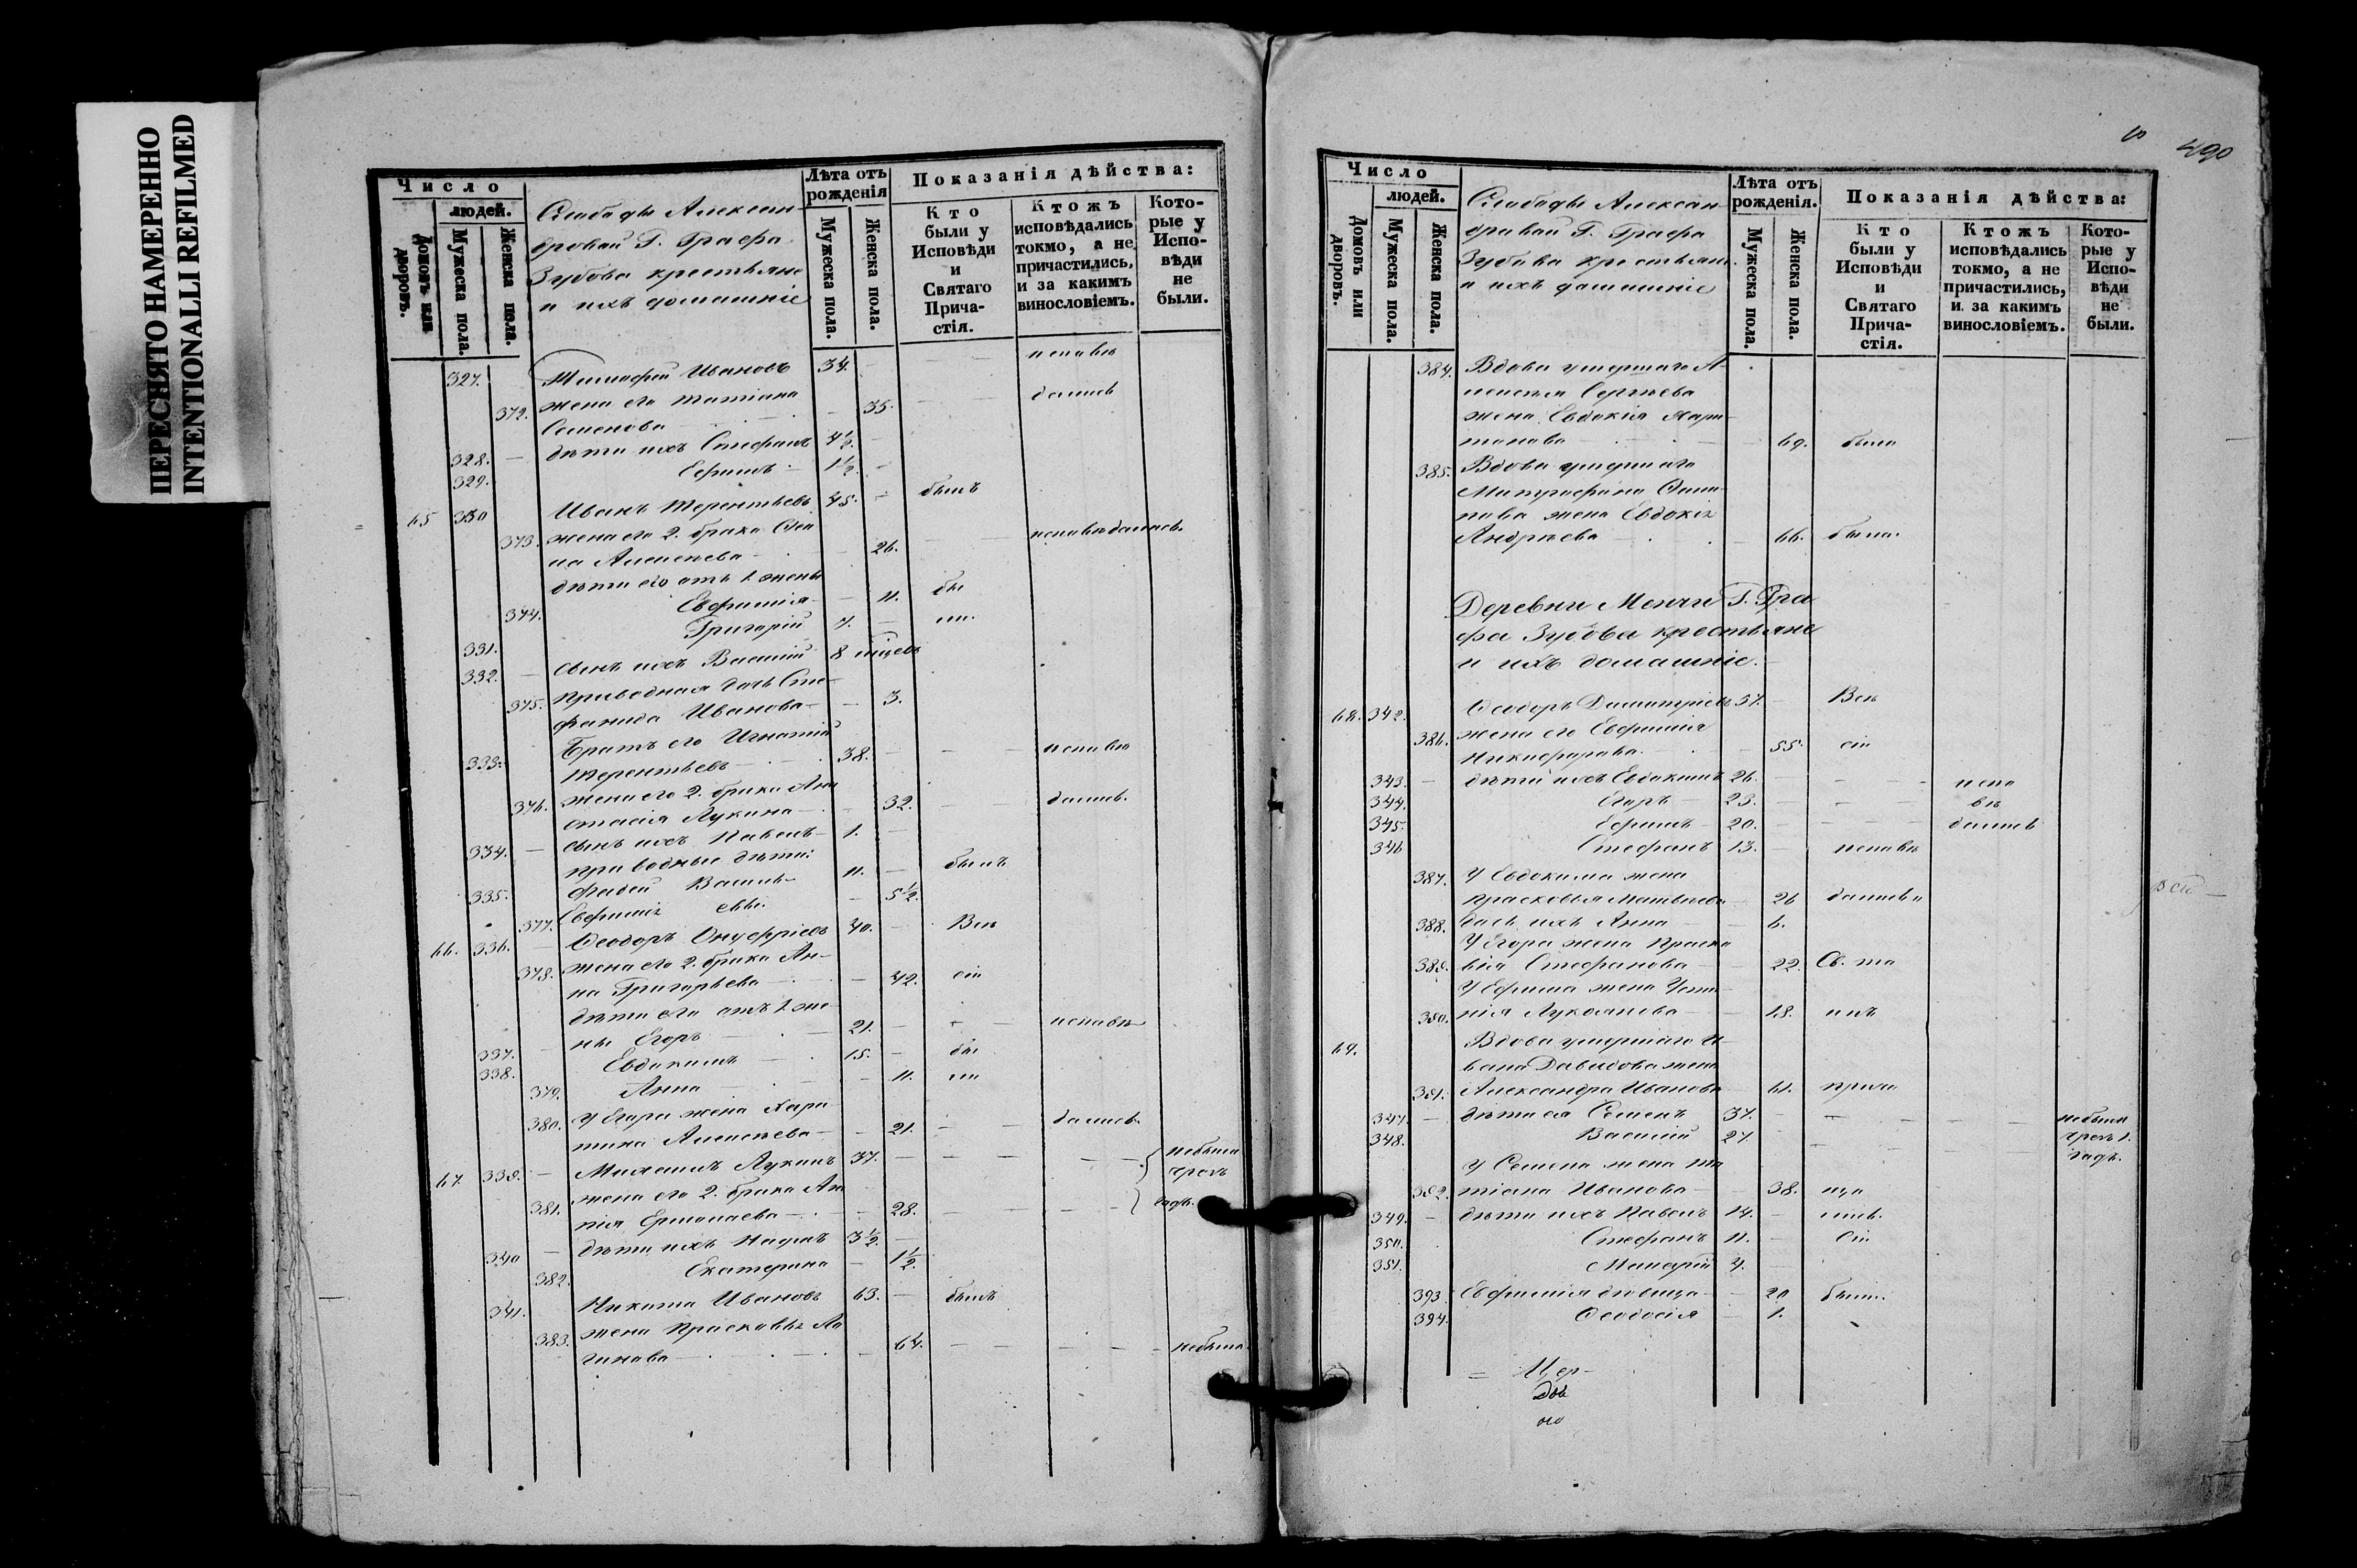 ПЕРЕСНЯТО НАМЕРЕННО
INTENTIONALLI REFILMED
Число
людей.
Домовъ или дворовъ.
Мужеска пола.
Женска пола.
Слободы Алексан-
дровой Г. Графа
Зубова крестьяне
и ихъ домашніе
Лѣта отъ рожденія
Мужеска пола.
Женска пола.
Показанія дѣйства:
Кто были у Исповѣди и Святаго Прича-стія.
Ктожъ исповѣдались токмо, а не причастились, и за какимъ винословіемъ.
Кото-рые у Испо-вѣди не были.
327. Тимофей Ивановъ 34. — — исповѣ
372. жена его Татіана
Семенова — 35. — далися
328. — дѣти ихъ Стефанъ 4½. —
329. Ефимъ — 1½. —
65 330 Иванъ Терентьевъ 45. — былъ
373. жена его 2. брака
на Алексѣева — 26. — исповѣдалась.
дѣти его отъ 1. жены
374. Евфимія — 11. бы
331. Григорій 7. — ли.
332. — сынъ ихъ Василій 8 міцевъ
375. приводная дочь Сте-
фанида Иванова — 3.
Братъ его Игнатій
333. Терентьевъ — 38. — — исповѣ
376. жена его 2. брака Ана
стасія Лукина — 32. — дались.
334. — сынъ ихъ Павелъ — 1. —
приводные дѣти:
335. Фадей Василь- 11. — былъ
377. Евфимія евы. — 5½.
66. 336. — Ѳеодоръ Онуфріевъ 40. — Всѣ
378. жена его 2. брака Ан-
на Григорьева — 42. сіи
дѣти его отъ 1. же-
337. ны Егоръ — 21. — — исповѣ
338. Евдокимъ — 15. — бы
379. Анна — 11. ли
380. У Егора жена Хари
тина Алексѣева — 21. — дались.
67. 339. — Михаилъ Лукинъ 37. — — — небыли
381. жена его 2. брака
нія Ермолаева — 28. — — — годъ.
340 — дѣти ихъ 3½. —
382. Екатерина — 1½.
341. Никита Ивановъ 63. — былъ
383. жена Прасковья Ло
гинова — 64. — — — небыла.
490
Число
людей.
Домовъ или дворовъ.
Мужеска пола.
Женска пола.
Слободы Алексан-
дровой Г. Графа
Зубова крестьяне
и ихъ домашніе
Лѣта отъ рожденія.
Мужеска пола.
Женска пола.
Показанія дѣйства:
Кто были у Исповѣди и Святаго Прича-стія.
Ктожъ исповѣдались токмо, а не причастились, и за какимъ винословіемъ.
Кото-рые у Испо-вѣди не были.
384. Вдова умершаго А-
лексѣя Сергѣева
жена Евдокія Хари-
тонова — 69. была
385. Вдова умершаго
Митрофана
жена Евдокія
Андрѣева — 66. была.
Деревни Г. Гра
фа Зубова крестьяне
и ихъ домашніе.
68. 342. Ѳеодоръ Димитріевъ 57. Всѣ
386. жена его Евфимія
Никифорова — 55. сіи
343. — дѣти ихъ Евдокимъ 26. — — — испо
344. Егоръ — 23. — — — вѣ
345. Ефимъ — 20. — — — дались
346 Стефанъ 13. — исповѣ
387. У Евдокима жена
Прасковья Матвѣева — 26 дались и
388. дочь ихъ Анна — 6.
У Егора жена Праско
389. вія Стефанова — 22. Св. та
У Ефима жена
390. нія Лукьянова — 18. инъ
69. Вдова умершаго И-
вана Давидова жена
391. Александра Иванова 61. прича
347. — дѣти ея Семенъ 37. — — — небыли
348. Василій 27. — — — чрезъ 1.
годъ.
У Семена жена Та
392. тіана Иванова — 38. ща
349. — дѣти ихъ Павелъ 14. — лись.
350. Стефанъ 11. — Сіи
351. Макарій 4. —
393. Евфимія дѣвица — 20 были.
394. Ѳеодосія — 1.